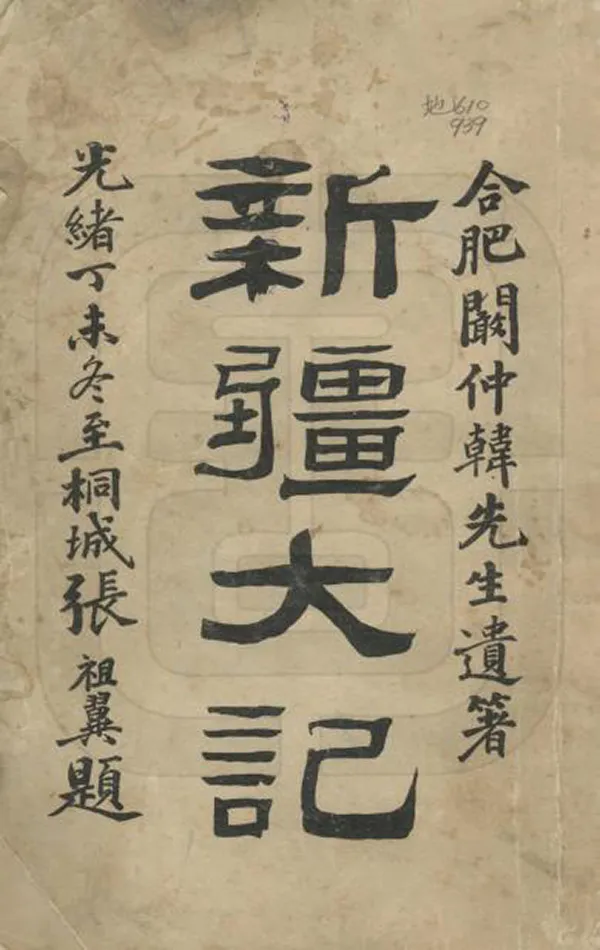 地610
939
合肥闞仲韓先生遺箸
新疆大記
光緒丁未冬至桐城張祖翼題